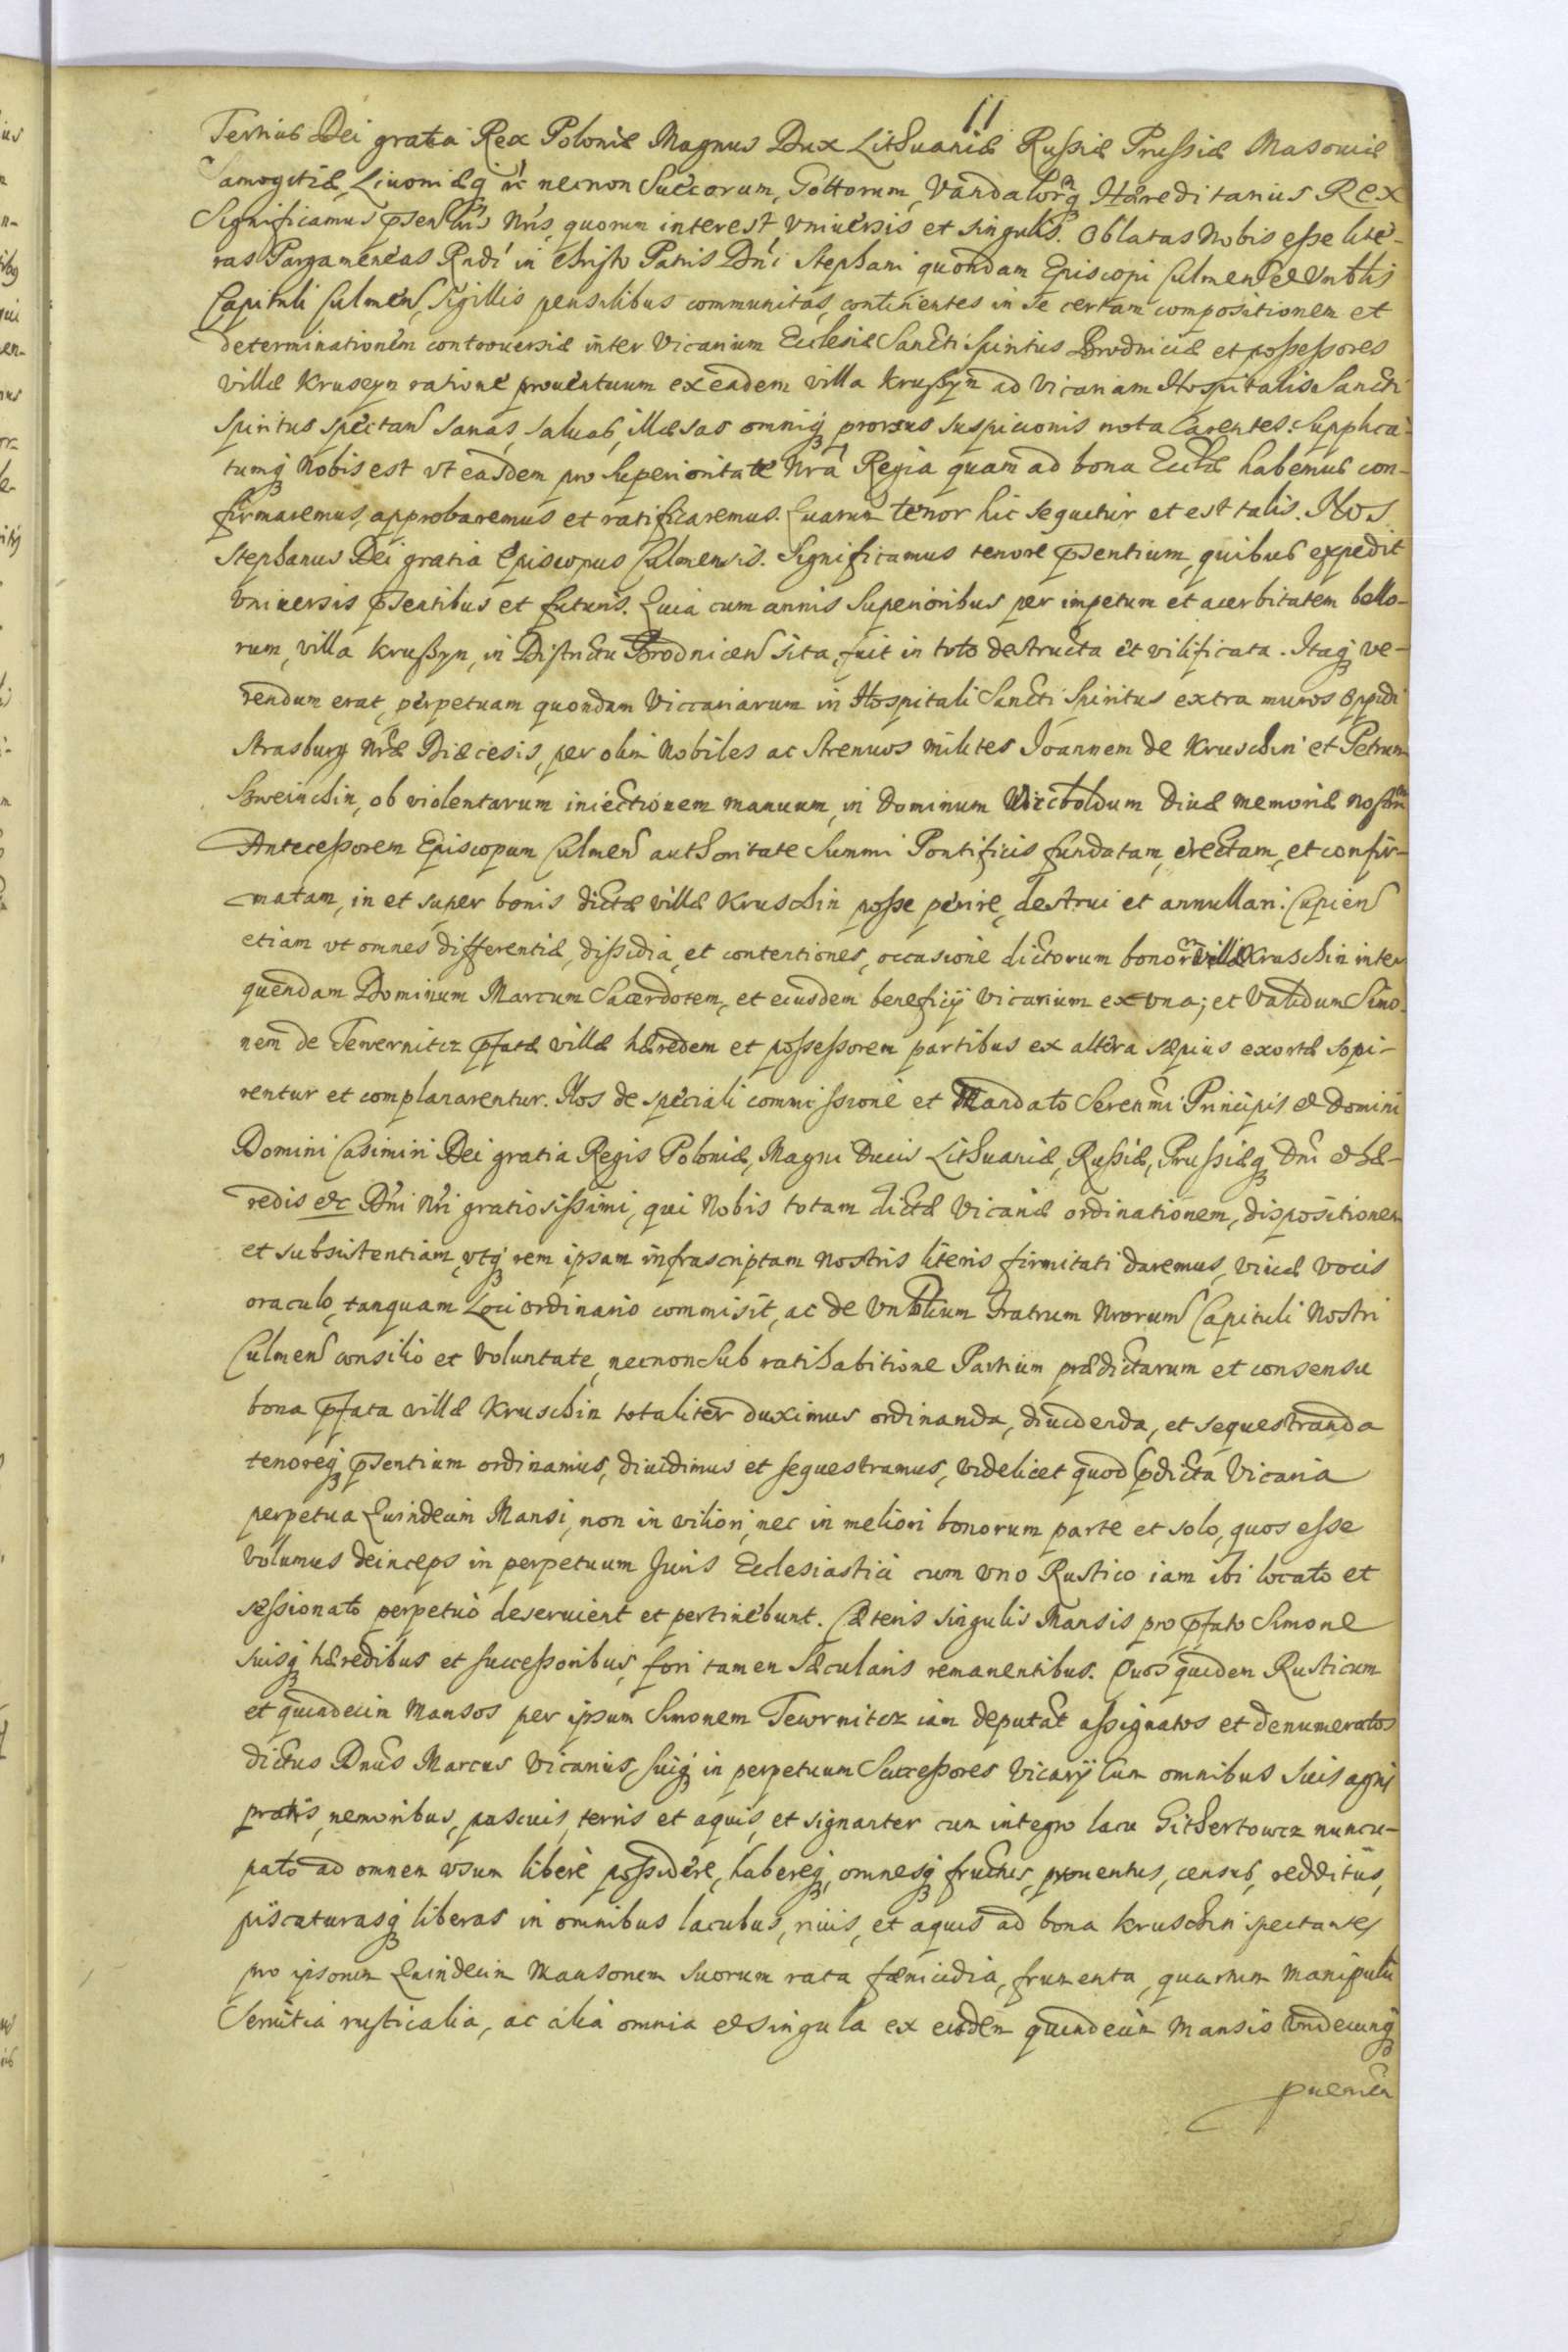 11
Tertius Dei gratia Rex Poloniæ Magnus Dux Lithuaniæ Russiæ Prussiæ Masouiæ
Samogitiæ, Liuoniæq́ ꝛc necnon Suecorum, Gottorum, Vandalorq́ Hæreditarius Rex
Significamus pṡentibs Nr̃is, quorum interest, vniuersis et singulis. Oblatas Nobis esse lite-
ras Pargameneas Rndi in Christo Patris Dn̄i Stephani quondam Episcopi Culmen̄ et Vnblis
Capituli Culmen̄, Sigillis pensilibus communitas, continentes in se certam compositionem et
determinationem controuersiæ inter Vicarium Ecclesiæ Sancti Spiritus Brodniciæ et possessores
villæ Kruseyn ratione prouentuum ex eadem villa Krussyn ad Vicariam Hospitalis Sancti
Spiritus spectan̄ sanas, saluas, illæsas omniq́ prorsus suspicionis nota Carentes. Supplica-
tumq́ Nobis est vt easdem pro Superioritate Nrã Regia quam ad bona Ecclæ habemus con-
firmaremus, approbaremus et ratificaremus. Quarum tenor hic sequitur et est talis. Nos
Stephanus Dei gratia Episcopus Culmensis. Significamus tenore pṡentium, quibus expedit
Vniuersis pṡentibus et futuris. Quia cum annis Superioribus per impetum et acerbitatem bello-
rum, villa Krussyn, in Districtu Brodnicen̄ sita, fuit in toto destructa et vilificata. Itaq́ ve-
rendum erat, perpetuam quondam Viccariarum in Hospitali Sancti Spiritus extra muros oppidi
Strasburg Nræ Diæcesis, per olim Nobiles ac Strenuos milites Joannem de Kruschin et Petrum
Szweinchin, ob violentarum iniectionem manuum, in Dominum Wicboldum Diuæ memoriæ nostrum
Antecessorem Episcopum Culmen̄ authoritate Summi Pontificis fundatam, erectam, et confir-
matam, in et super bonis dictæ villæ Kruschin posse perire, destrui et annullari. Cupien̄
etiam vt omnes differentiæ, dissidia, et contentiones, occasione dictorum bonor villæ Kruschin inter
quendam Dominum Marcum Sacerdotem, et eiusdem beneficij Vicarium ex vna; et Validum Simo-
nem de Tewernitcz pfatæ villæ hæredem et possessorem partibus ex altera sæpius exortæ sopi-
rentur et complanarentur. Nos de speciali commissione et Mandato Seren̄mi Principis et Domini
Domini Casimiri Dei gratia Regis Poloniæ, Magni Ducis Lithuaniæ, Russiæ, Prussiæq́ Dn̄i et hæ-
redis etc Dn̄i Nr̃i gratiosissimi, qui Nobis totam dictæ Vicariæ ordinationem, dispositionem
et subsistentiam, vtq́ rem ipsam infrascriptam nostris literis firmitati daremus, viuæ vocis
oraculo, tanquam Loci ordinario commisit, ac de Vnblium Fratrum Nrorum Capituli Nostri
Culmen̄ consilio et voluntate, necnon Sub ratihabitione Partium prædictarum et consensu
bona pfata villæ Kruschin totaliter duximus ordinanda, diuidenda, et sequestranda
tenoreq́ pṡentium ordinamus, diuidimus et sequestramus, videlicet quod pdicta Vicaria
perpetua Quindecim Mansi, non in viliori, nec in meliori bonorum parte et solo, quos esse
volumus deinceps in perpetuum Juris Ecclesiastici cum vno Rustico iam ibi locato et
sessionato perpetuò deseruient et pertinebunt. Cæteris singulis Mansis pro pfato Simone
suisq́ hæredibus et successoribus, fori tamen sæcularis remanentibus. Quos quidem Rusticum
et quindecim Mansos per ipsum Simonem Tewrnitcz iam deputat assignatos et denumeratos
dictus Dnus Marcus Vicarius, suiq́ in perpetuum Successores Vicarij cum omnibus suis agris
pratis, nemoribus, pascuis, terris et aquis, et signanter cum integro lacu Githertowcz nuncu-
pato ad omnem vsum liberè possidere, habereq́, omnesq́ fructus, prouentus, census, redditus,
piscaturasq́ liberas in omnibus lacubus, riuis, et aquis ad bona Kruschin spectantes
pro ipsorum Quindecim Mansorum suorum rata fænicidia, frumenta, quarum manipuli
Seruitia rusticalia, ac alia omnia et singula ex eisdem quindecim Mansis vndecunq́